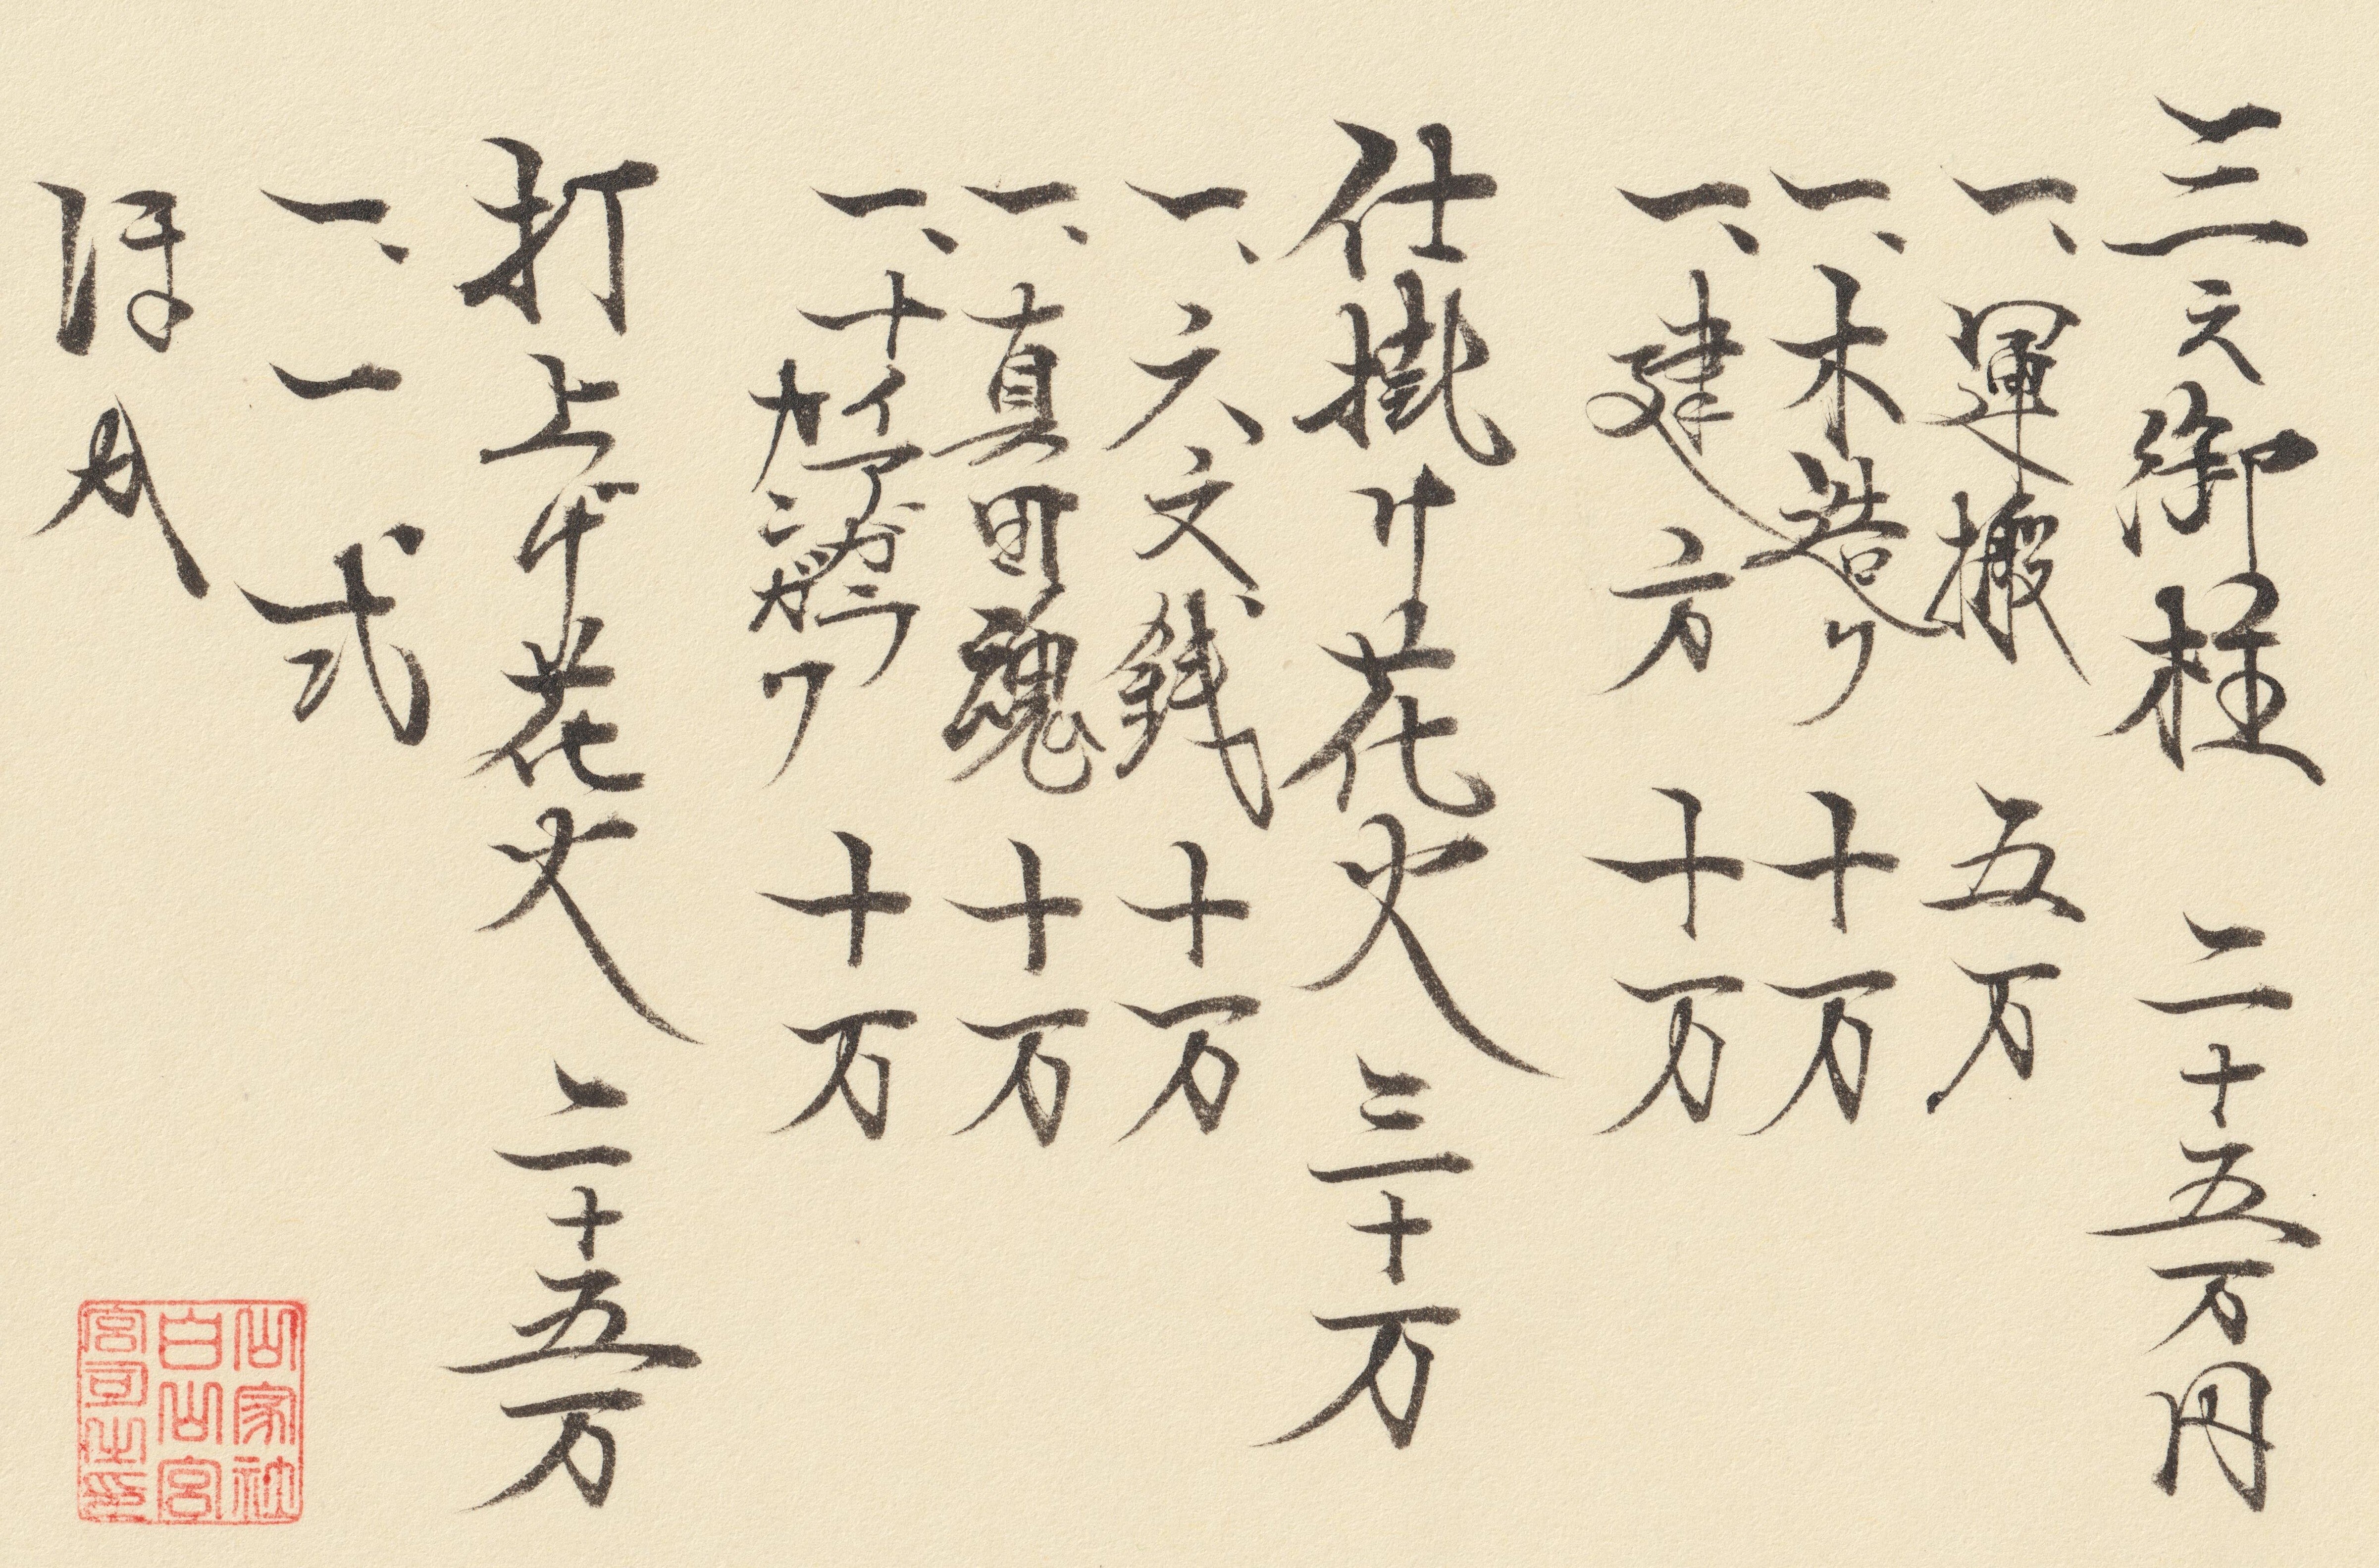 三之御柱 二十五万円
一、運搬 五万
一、木造リ 十万
一、建方 十万
仕掛け花火 三十万
一、六文銭 十万
一、真田魂 十万
一、ナイアガラ 十万
打上げ花火 二十五万
一、一式
ほか
山家神社
白山宮
宮司之印